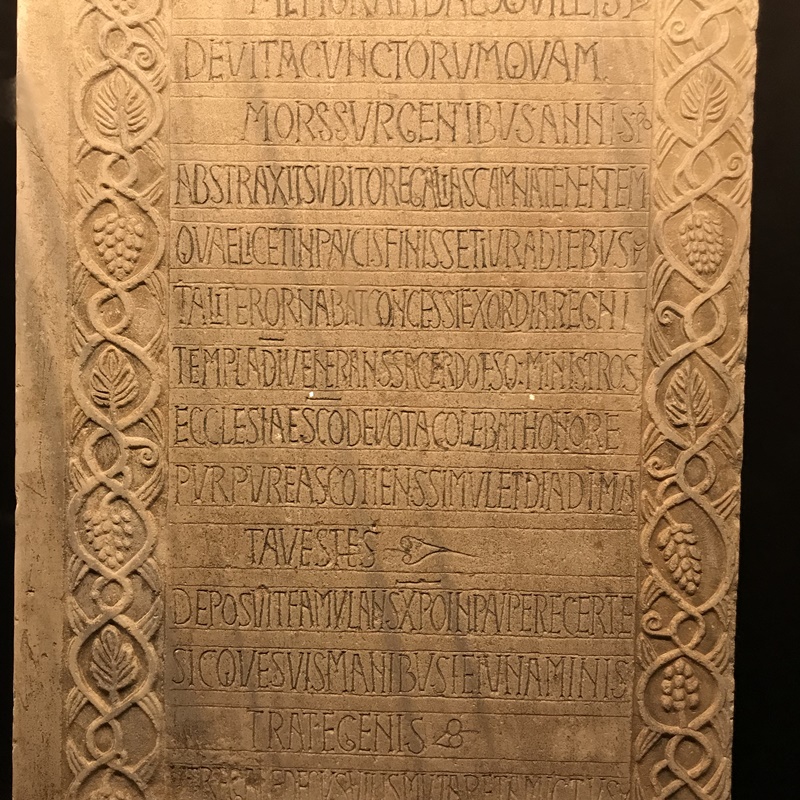 DEVITACVNCTORVMQVAM
MORSSVRGENTIBVSANNIS
ABSTRAXITSVBITOREGALIASCAMNATENENTEM
QVAELICETINPACISFINISSETIVRADIEBVS
TALITERORNABATCONCESSIEXORDIAREGNI
TEMPLADIVENERANSSACERDOTESQ·MINISTROS
ECCLESIAESCODEVOTACOLEBATHONORE
PVRPVREASCOTIENSSIMVLETDIADIMA
TAVESTES
DEPOSVITFAMVLANSXPOINPAVPERECERTE
SICQVESVISMANIBVSIEIVNAMINIS
TRATEGENIS